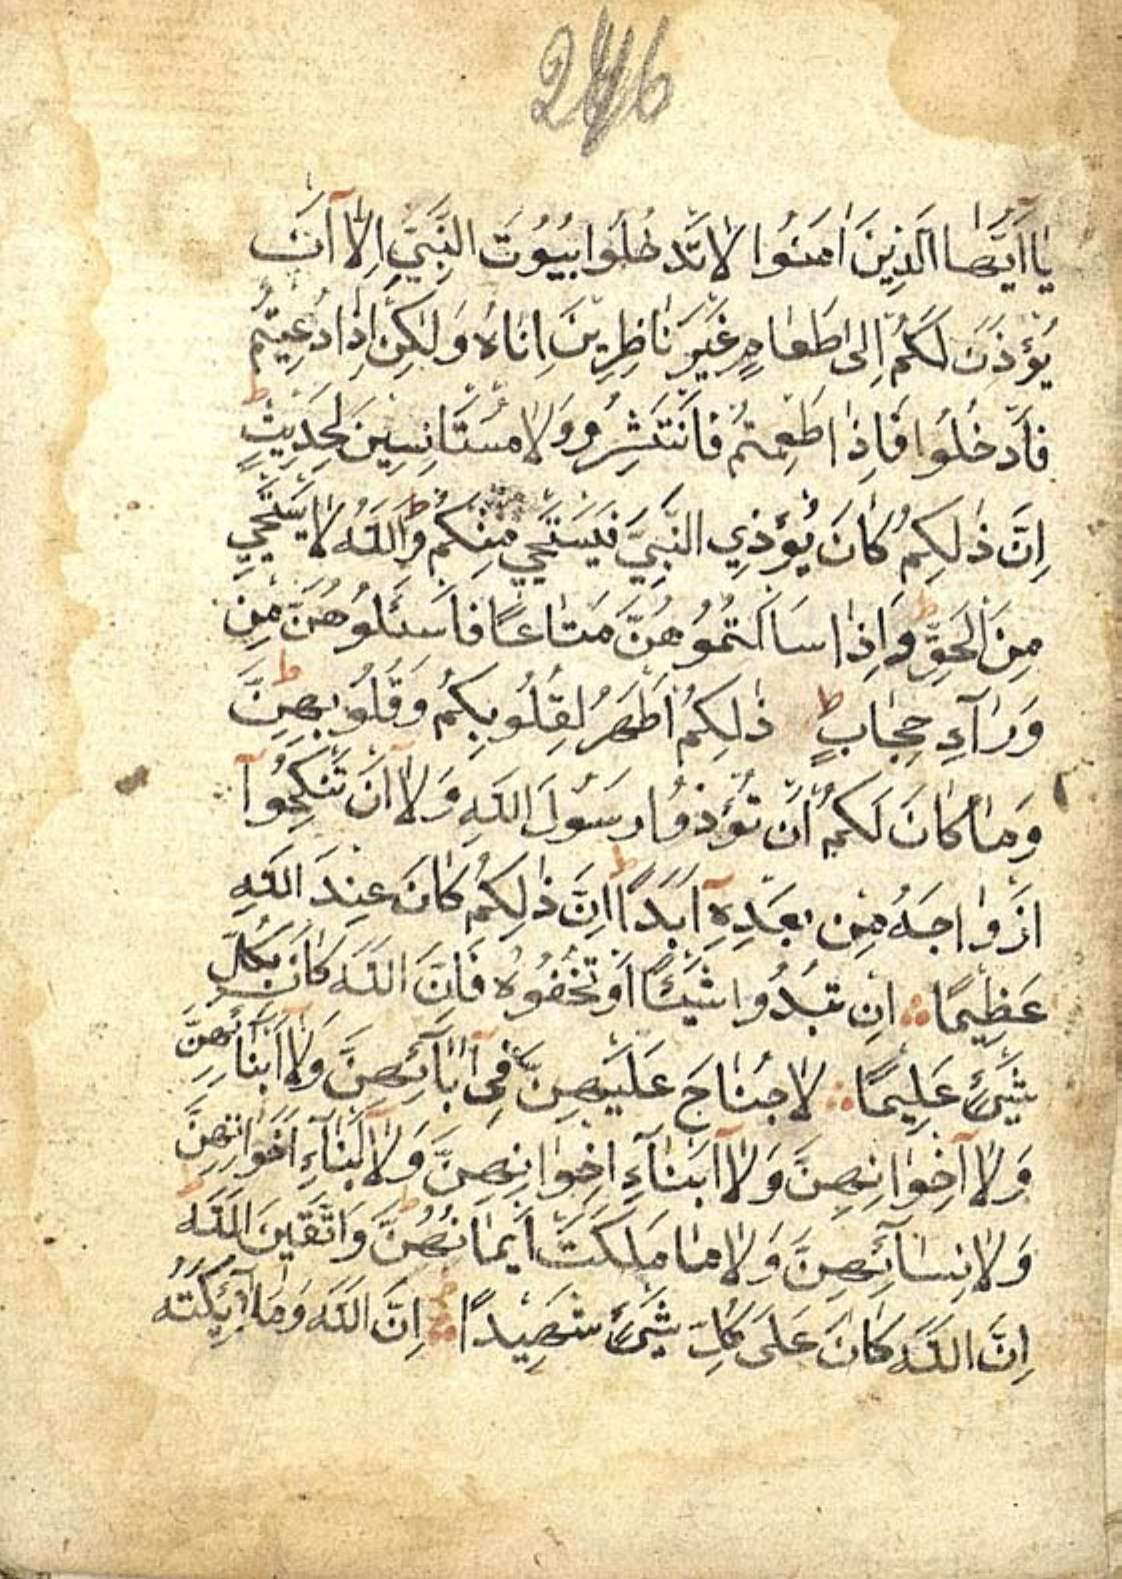 246
يَا اَيُّهَا الَّذِينَ اٰمَنُوا لَا تَدْخُلُوا بُيُوتَ النَّبِيِّ اِلَّا اَنْ
يُؤْذَنَ لَكُمْ اِلىٰ طَعَامٍ غَيْرَ نَاظِرِينَ اِنَاهُ وَلٰكِنْ اِذَا دُعِيتُمْ
فَادْخُلُوا فَاِذَا طَعِمْتُمْ فَانْتَشِرُو وَلَا مُسْتَانِسِينَ لِحَدِيثٍ ط
اِنَّ ذٰلِكُمْ كَانَ يُؤْذِي النَّبِيَّ فَيَسْتَحْيِي مِنْكُمْ ط وَاللّٰهُ لَا يَسْتَحْيِي
مِنَ الْحَقِّ ط وَاِذَا سَاَلْتُمُوهُنَّ مَتَاعًا فَاسْئَلُوهُنَّ مِنْ
وَرَآءِ حِجَابٍ ط ذٰلِكُمْ اَطْهَرُ لِقُلُوبِكُمْ وَقُلُوبِهِنَّ ط
وَمَا كَانَ لَكُمْ اَنْ تُؤْذُوا رَسُولَ اللّٰهِ وَلَا اَنْ تَنْكِحُوٓا
اَزْوَاجَهُ مِنْ بَعْدِهِٓ اَبَدًا ط اِنَّ ذٰلِكُمْ كَانَ عِنْدَ اللّٰهِ
عَظِيمًا ۞ اِنْ تُبْدُوا شَيْئًا اَوْ تُخْفُوهُ فَاِنَّ اللّٰهَ كَانَ بِكُلِّ
شَيْئٍ عَلِيمًا ۞ لَا جُنَاحَ عَلَيْهِنَّ فِىٓ اٰبَآئِهِنَّ وَلَٓا اَبْنَآئِهِنَّ
وَلَٓا اِخْوَانِهِنَّ وَلَٓا اَبْنَآءِ اِخْوَانِهِنَّ وَلَٓا اَبْنَآءِ اَخَوَاتِهِنَّ
وَلَا نِسَآئِهِنَّ وَلَا مَا مَلَكَتْ اَيْمَانُهُنَّ ط وَاتَّقِينَ اللّٰهَ ط
اِنَّ اللّٰهَ كَانَ عَلىٰ كُلِّ شَيْئٍ شَهِيدًا ۞ اِنَّ اللّٰهَ وَمَلٰٓئِكَتَهُ